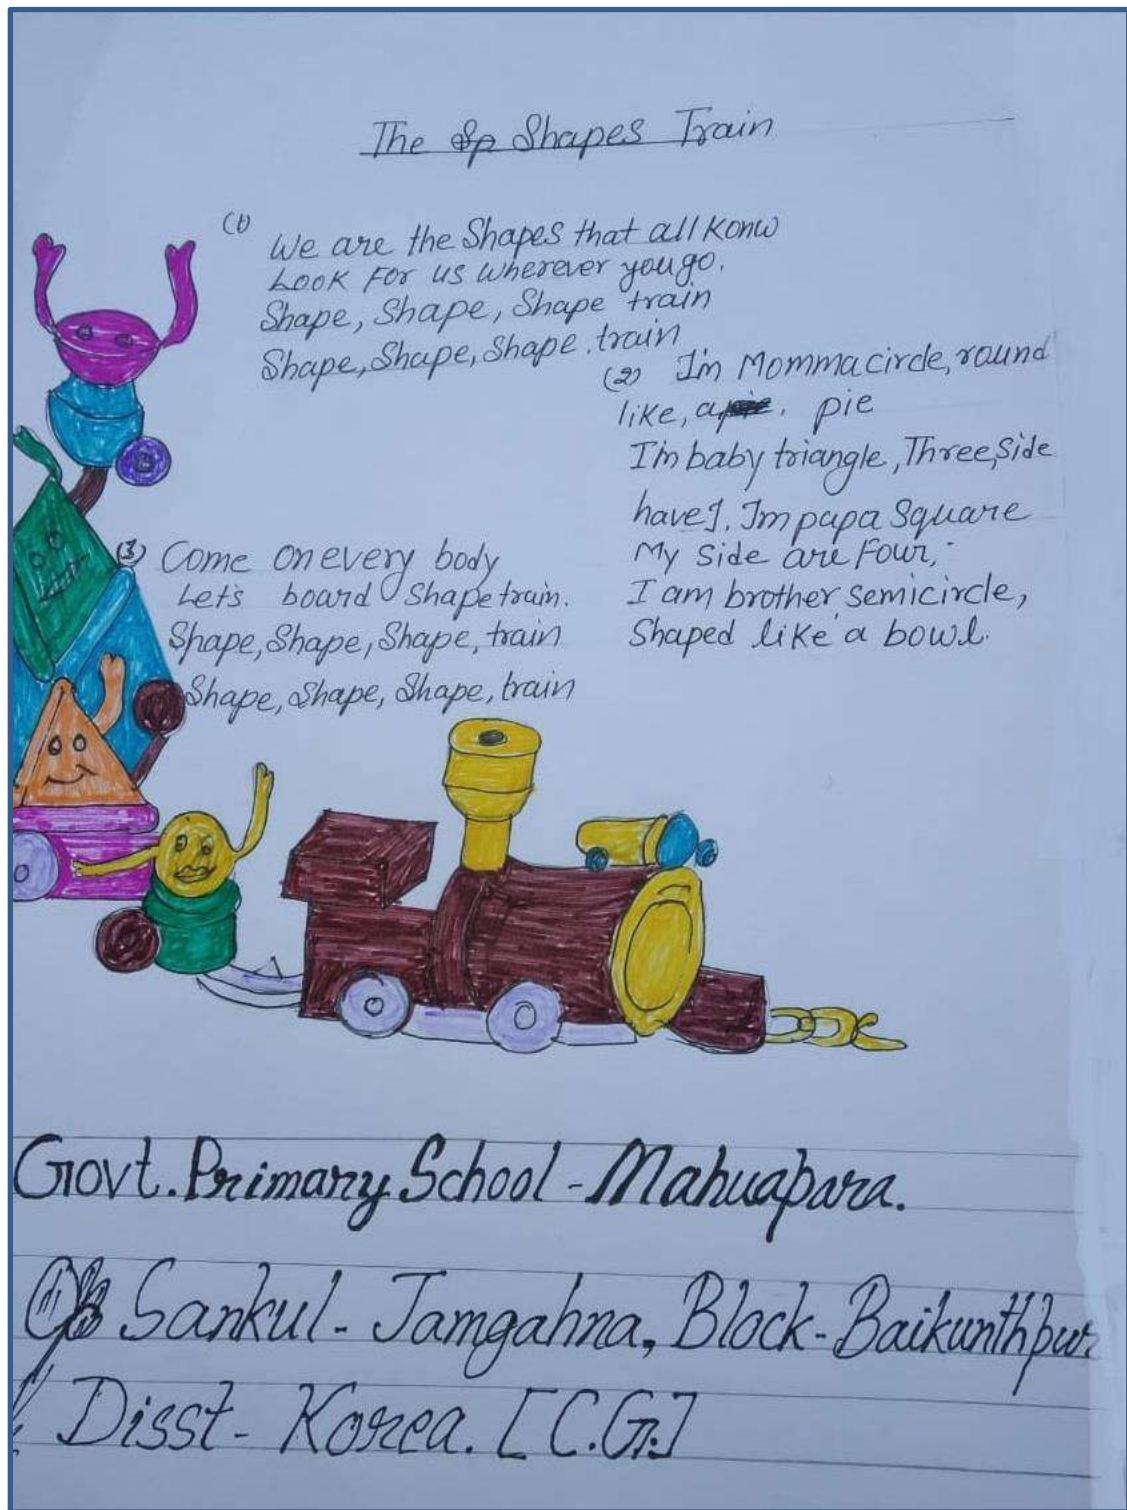 The Shapes Train
(1)
We are the Shapes that all Konw
Look For us wherever you go.
Shape, Shape, Shape train
Shape, Shape, Shape. train
(2) I'm Momma circle, round
like, a pie
I'm baby triangle, Three, side
have I. Im papa Square
My Side are Four,
I am brother semicircle,
Shaped like a bowl.
(3) Come on every body
Let's board Shape train.
Shape, Shape, Shape, train
Shape, Shape, Shape, train
Govt. Primary School - Mahuapara.
Sankul - Jamgahna, Block - Baikunthpur
Disst - Korea. [C.G.]